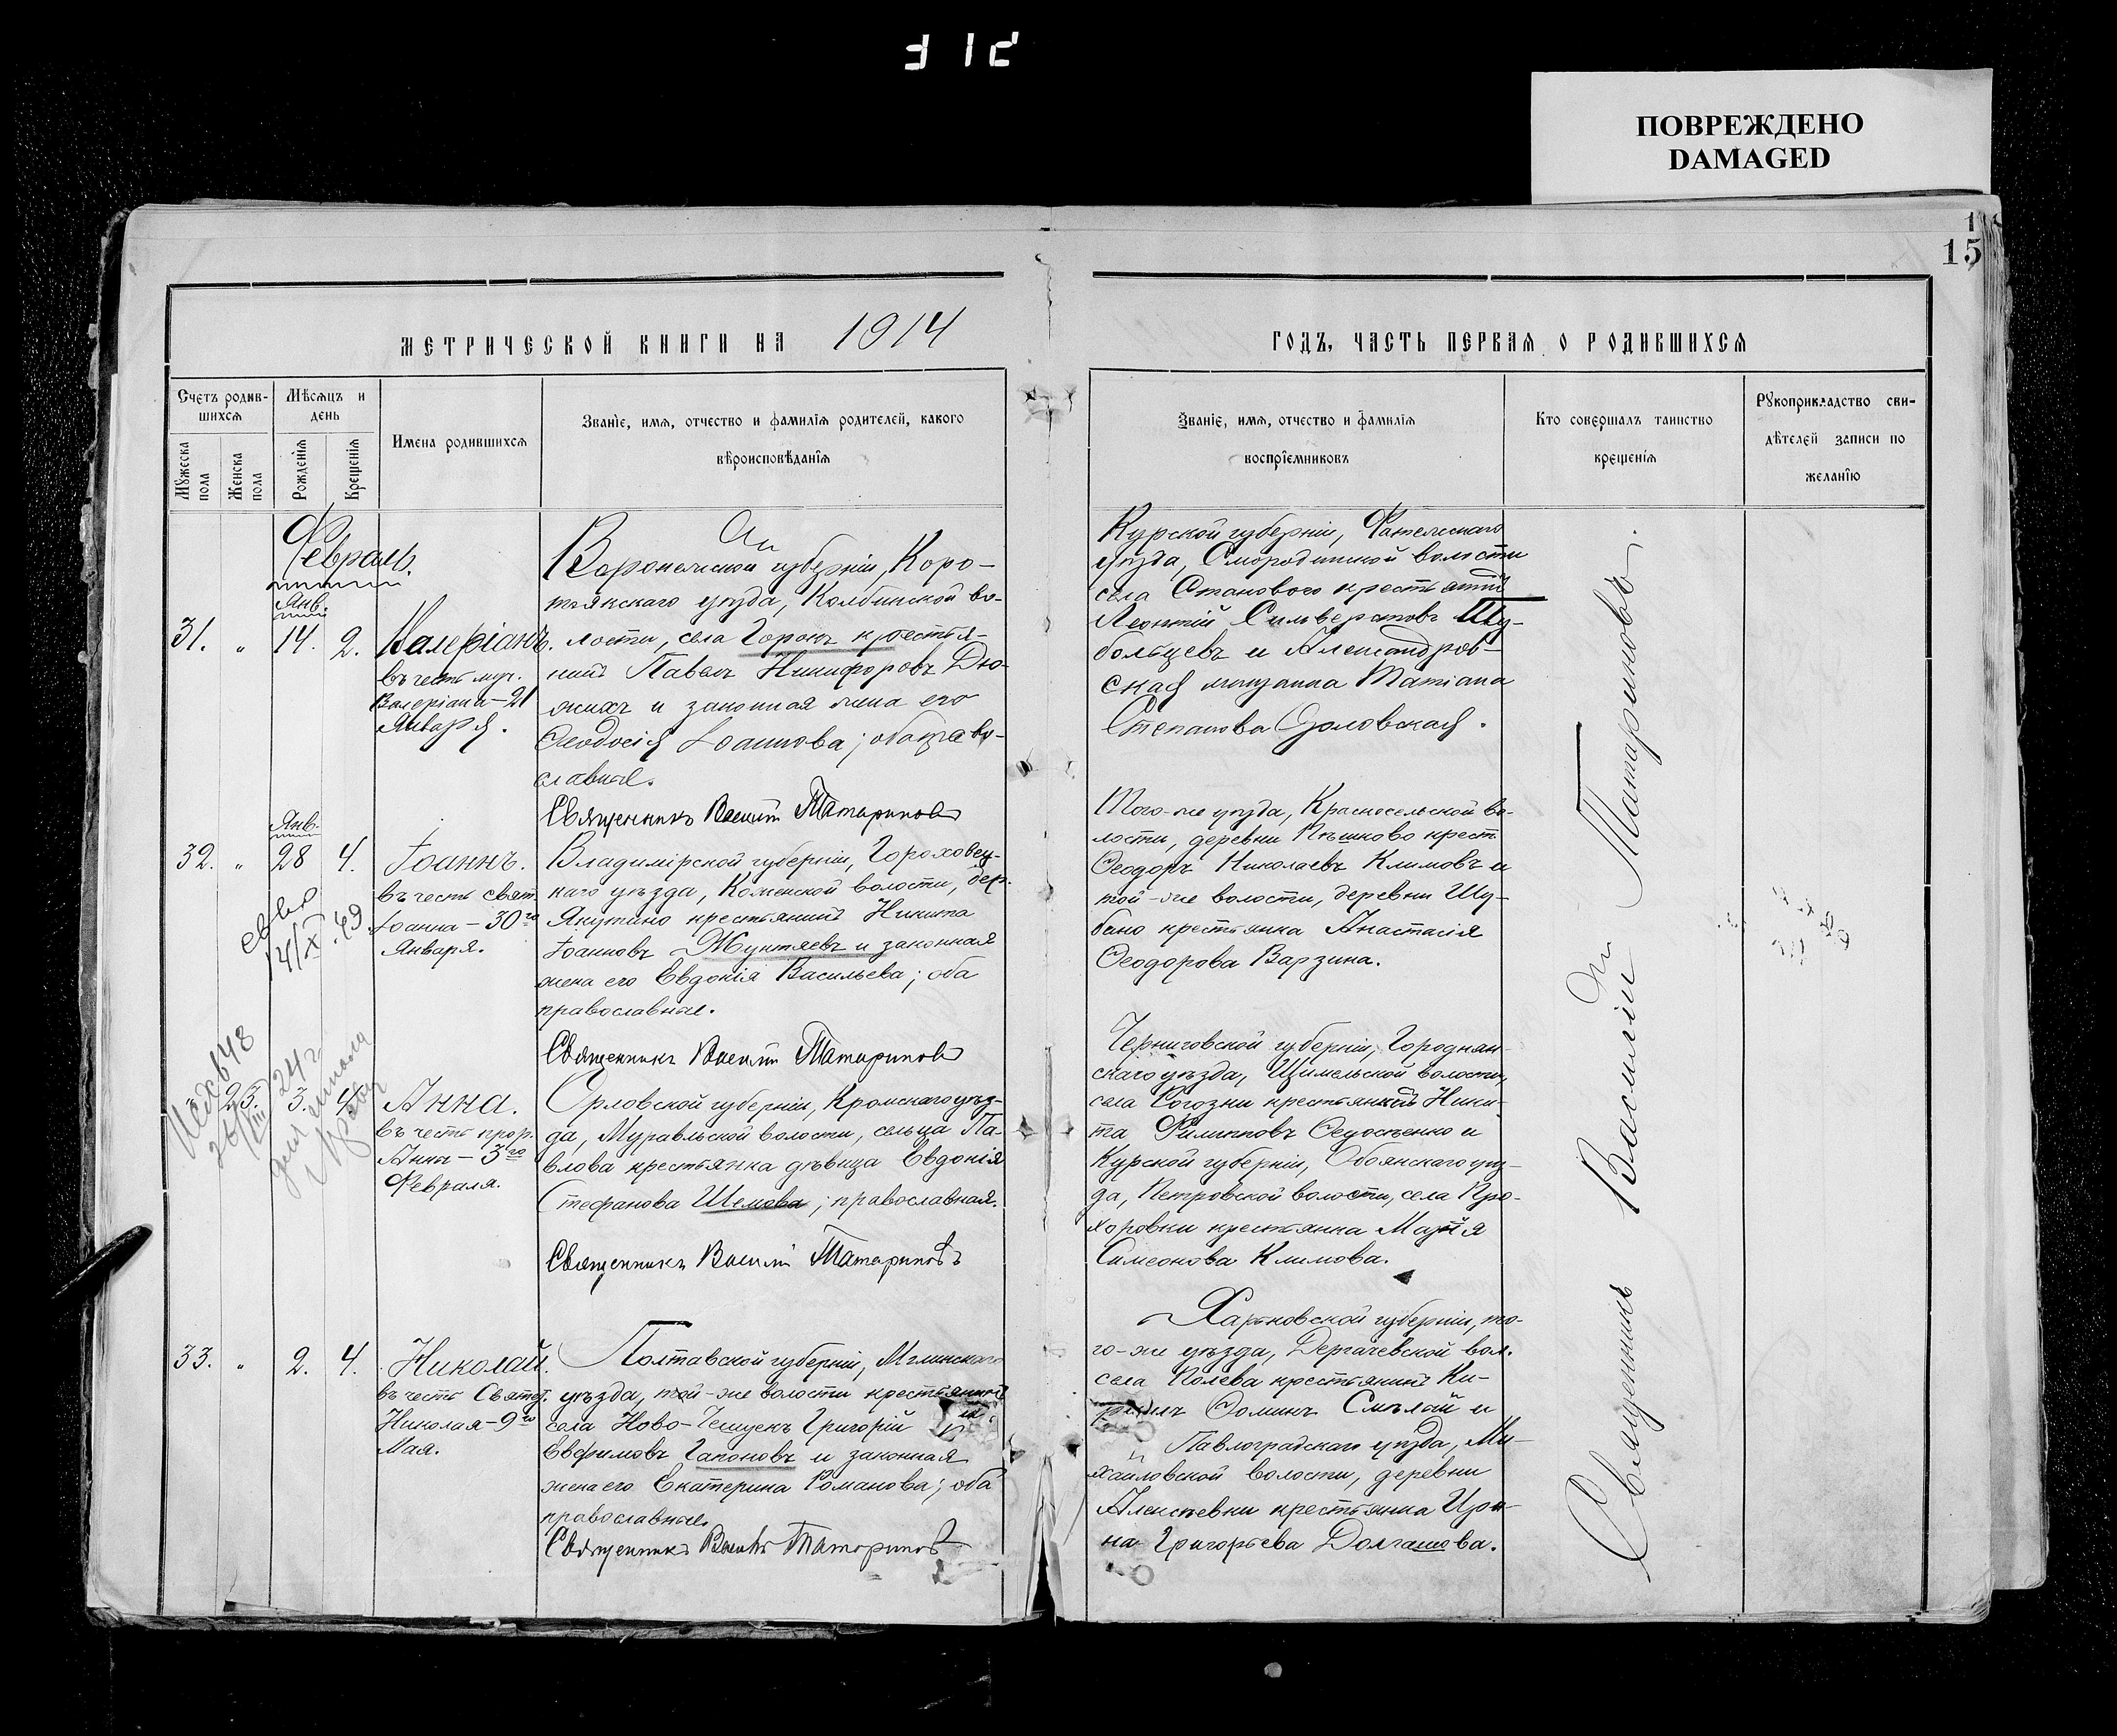 ПОВРЕЖДЕНО
DAMAGED
15
МЕТРИЧЕСКОЙ КНИГИ НА 1914
ГОДЪ, ЧАСТЬ ПЕРВАЯ О РОДИВШИХСЯ
Счетъ родив-
шихся
Мѣсяцъ и
день
Мужеска пола
Женска пола
Рожденія
Крещенія
Имена родившихся
Званіе, имя, отчество и фамилія родителей, какого
вѣроисповѣданія
Званіе, имя, отчество и фамилія
воспріемниковъ
Кто совершалъ таинство
крещенія
Рукоприкладство сви-
дѣтелей записи по
желанію
Февраль.
Янв.
31. „ 14. 2. Валеріанъ.
въ честь муч.
Валеріана – 21
Января.
Воронежской губерніи, Коро-
тоякскаго уѣзда, Колбинской во-
лости, села крестья-
нинъ Павелъ Никифоровъ
и законная жена его
Ѳеодосія Іоаннова; оба право-
славные.
Священникъ Василій Татариновъ
Курской губерніи, Фатежскаго
уѣзда, Смородинской волости
села Станового крестьянинъ
Леонтій Сильверстовъ
и Александров-
ская мѣщанка Татіана
Степанова Орловская.
Янв.
32. „ 28 4. Іоаннъ.
въ честь свят.
Іоанна – 30го
Января.
Владимірской губерніи, Гороховец-
каго уѣзда, волости, дер.
Якутино крестьянинъ Никита
Іоанновъ Жунтяевъ и законная
жена его Евдокія Васильева; оба
православные.
Священникъ Василій Татариновъ
Того-же уѣзда, Красносельской во-
лости, деревни крест.
Ѳеодоръ Николаевъ Климовъ и
той-же волости, деревни Шу-
бино крестьянка Анастасія
Ѳеодорова Варзина.
23. 3. 4. Анна.
въ честь прор.
Анны – 3го
Февраля.
Орловской губерніи, Кромскаго уѣз-
да, волости, сельца Па-
влова крестьянка дѣвица Евдокія
Стефанова Шемова; православная.
Священникъ Василій Татариновъ
Черниговской губерніи, Городнян-
скаго уѣзда, волости,
села крестьянинъ Ники-
та Филипповъ Ѳедосѣенко и
Курской губерніи, Обоянскаго уѣз-
да, Петровской волости, села Про-
хоровки крестьянка Марія
Симеонова Климова.
33. „ 2. 4. Николай.
въ честь Святит.
Николая – 9го
Мая.
Полтавской губерніи, Мглинскаго
уѣзда, той-же волости крестьянинъ
села Григорій
Евфимовъ Гапоновъ и законная
жена его Екатерина Романова; оба
православные.
Священникъ Василій Татариновъ
Харьковской губерніи, то-
го-же уѣзда, Дергачевской вол.
села Полева крестьянинъ Ки-
риллъ Ѳоминъ Смѣлай и
Павлоградскаго уѣзда, Ми-
хайловской волости, деревни
Алексѣевки крестьянка Ири-
на Григорьева Долгашова.
Священникъ Василій Татариновъ.